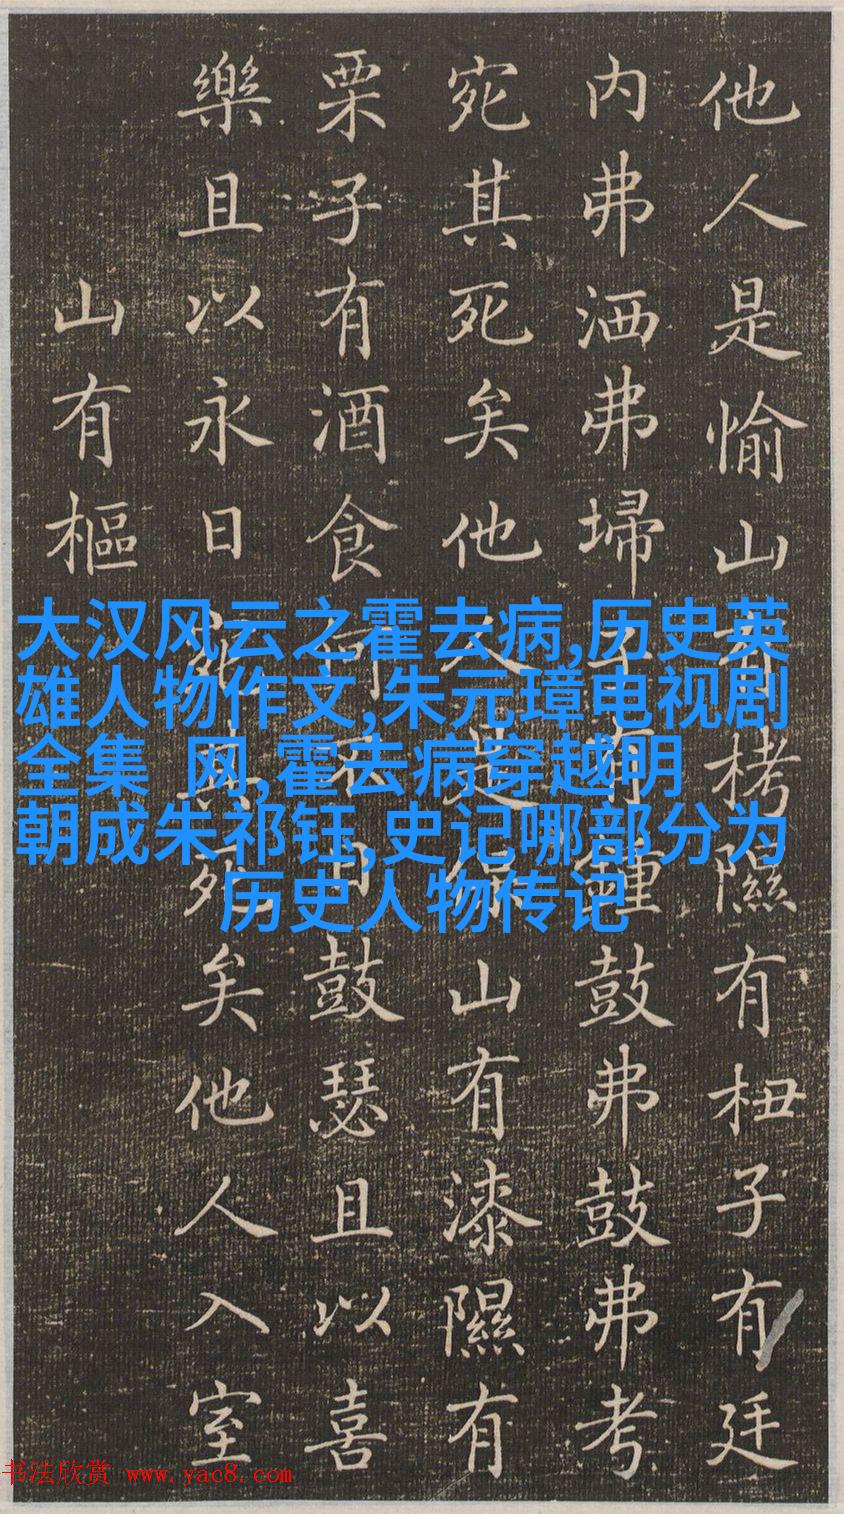 他人是愉山有栲隰有杻子有廷
内弗洒弗埽子有鍾鼓弗鼓弗考
宛其死矣他人是保山有漆隰有
栗子有酒食何不日鼓瑟且以喜
樂且以永日宛其死矣他人入室
山有樞
大汉风云之霍去病,历史英
雄人物作文,朱元璋电视剧
全集 网,霍去病穿越明
朝成朱祁钰,史记哪部分为
历史人物传记
书法欣赏 www.yac8.com